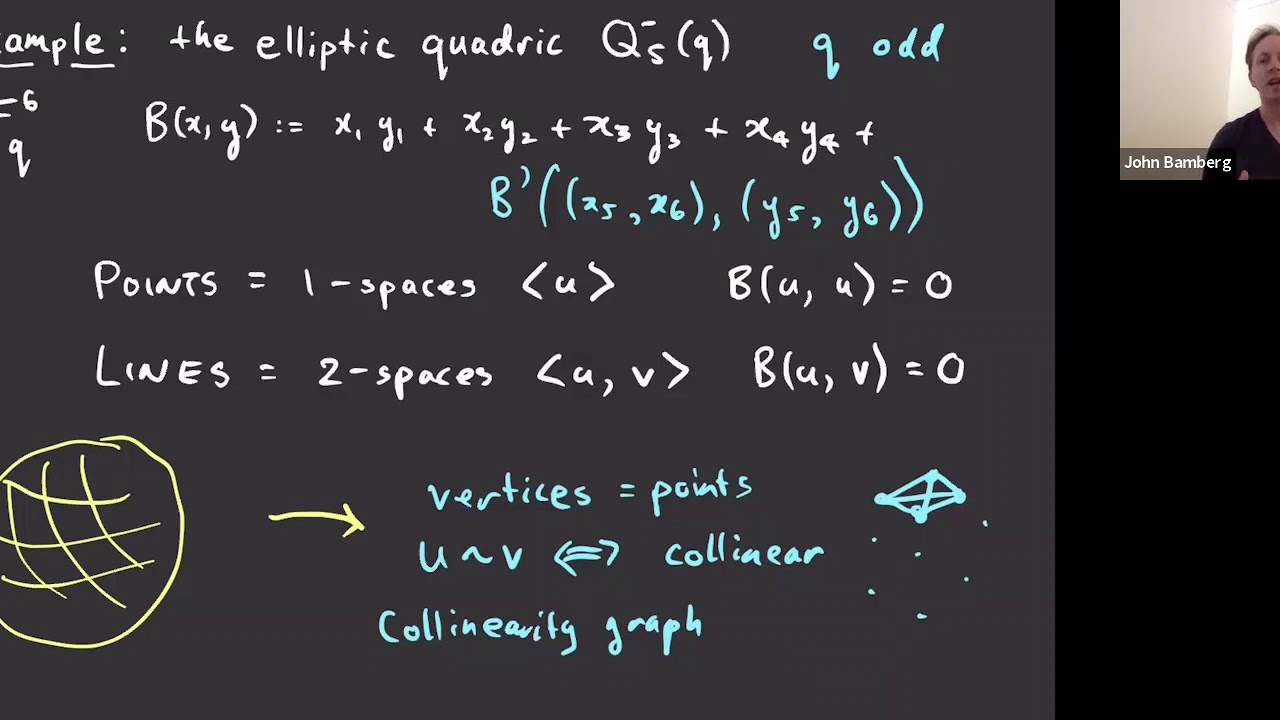 ample: the elliptic quadric Q⁻₅(q) q odd
=6
q
B(x, y) := x₁ y₁ + x₂ y₂ + x₃ y₃ + x₄ y₄ +
B'((x₅, x₆), (y₅, y₆))
POINTS = 1-spaces <u> B(u, u) = 0
LINES = 2-spaces <u, v> B(u, v) = 0
vertices = points
u ~ v ⟺ collinear
Collinearity graph
John Bamberg